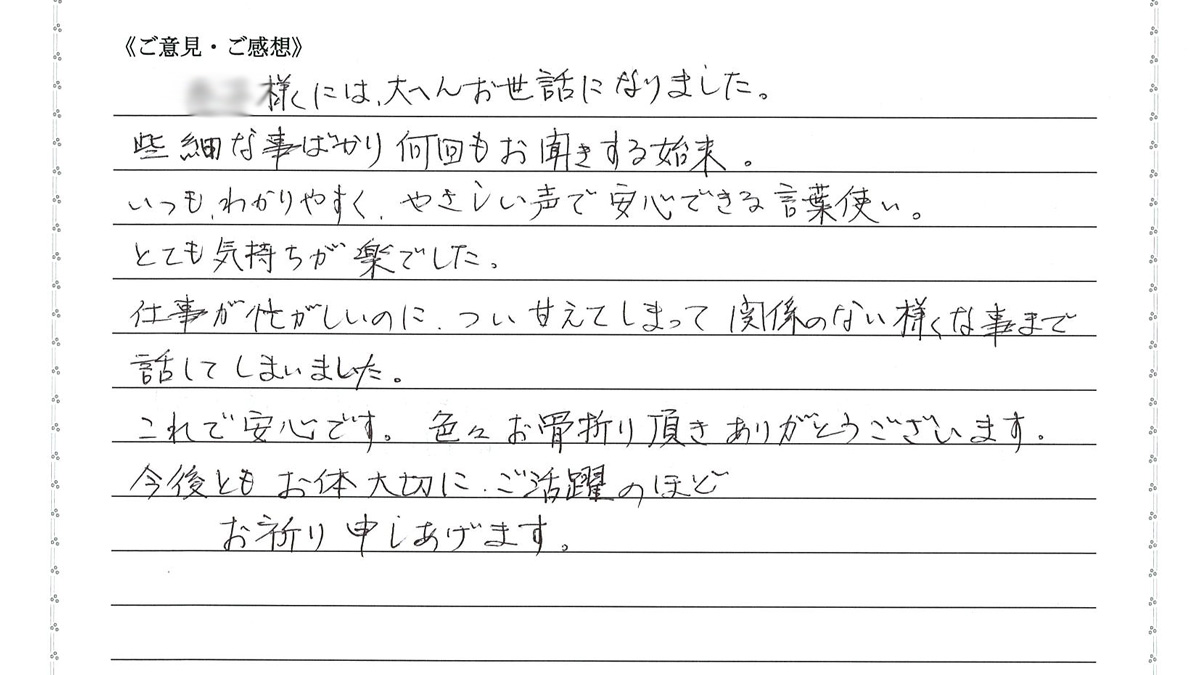 《ご意見・ご感想》
様には、大へんお世話になりました。
些細な事ばかり何回もお聞きする始末。
いつも、わかりやすく、やさしい声で安心できる言葉使い。
とても気持ちが楽でした。
仕事が忙がしいのに、つい甘えてしまって関係のない様な事まで
話してしまいました。
これで安心です。色々お骨折り頂きありがとうございます。
今後ともお体大切に、ご活躍のほど
お祈り申しあげます。